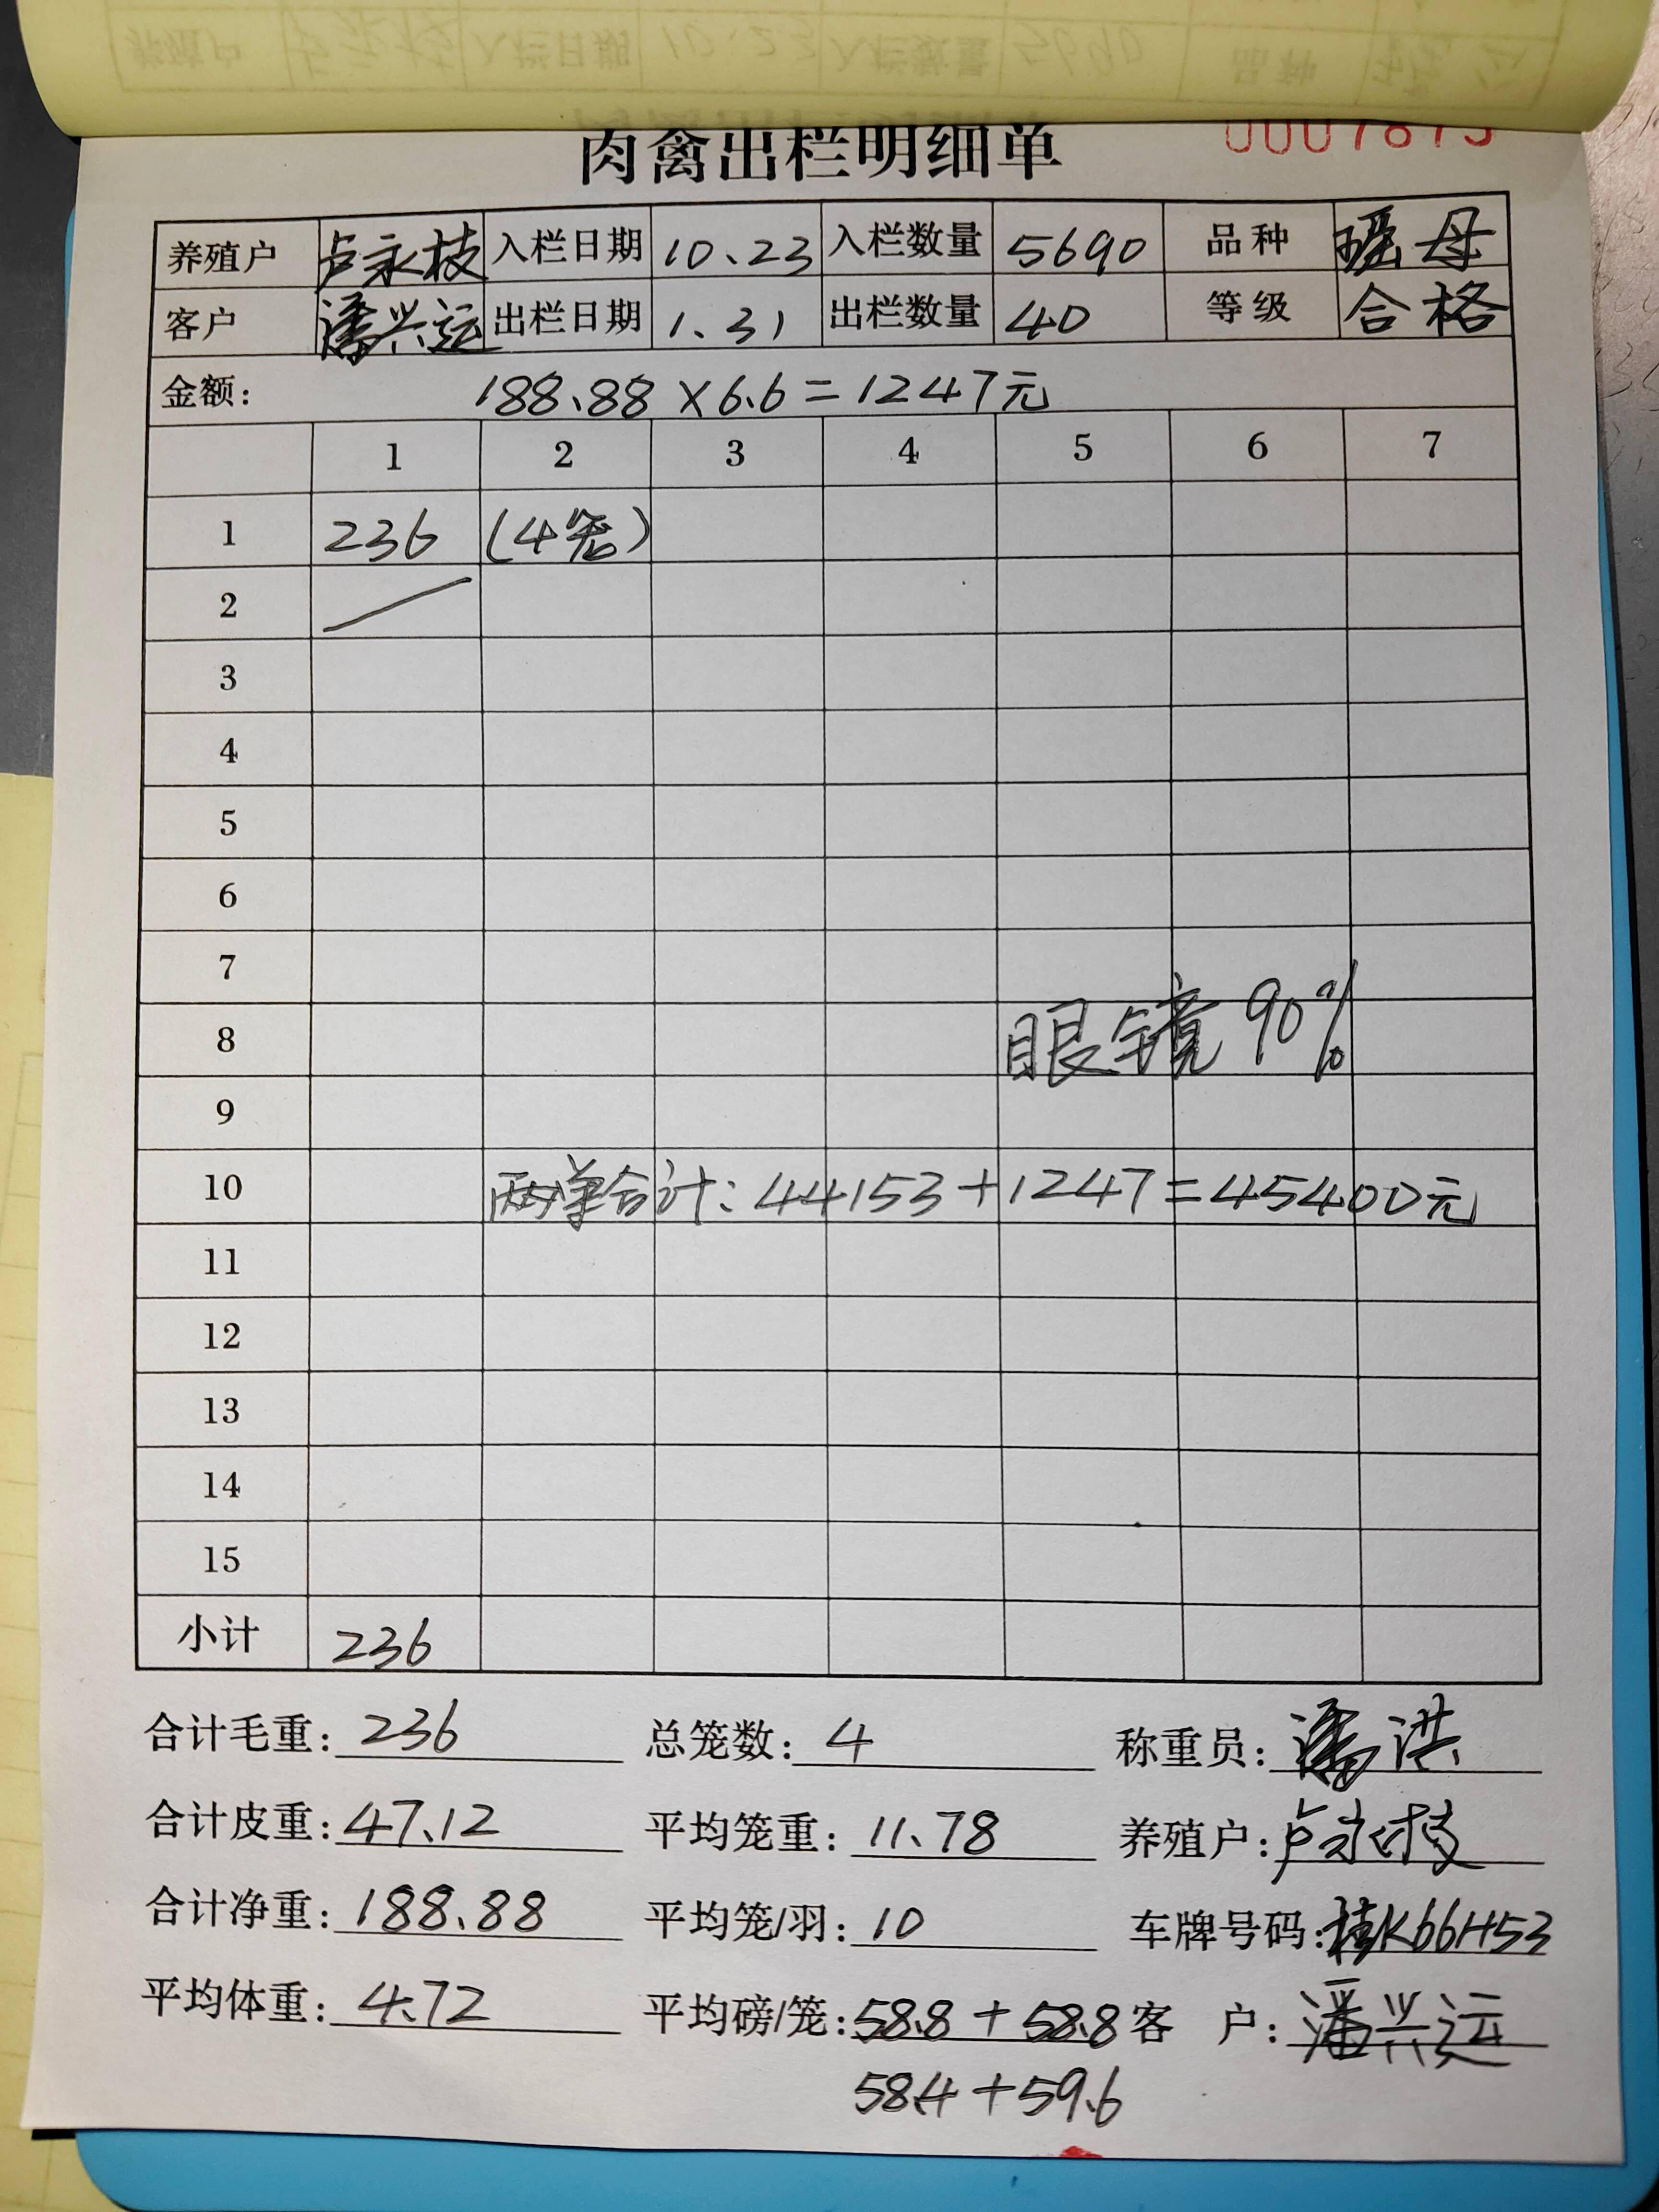 肉禽出栏明细单 0007875
养殖户 卢永枝 入栏日期 10.23 入栏数量 5690 品种 瑶母
客户 潘兴运 出栏日期 1.31 出栏数量 40 等级 合格
金额: 188.88×6.6=1247元
1 2 3 4 5 6 7
1 236 (4笼)
2
3
4
5
6
7
8 眼镜90%
9
10 两单合计:44153+1247=45400元
11
12
13
14
15
小计 236
合计毛重: 236 总笼数: 4 称重员: 潘洪
合计皮重: 47.12 平均笼重: 11.78 养殖户: 卢永枝
合计净重: 188.88 平均笼/羽: 10 车牌号码: 桂K66H53
平均体重: 4.72 平均磅/笼: 58.8+58.8 客 户: 潘兴运
58.4+59.6